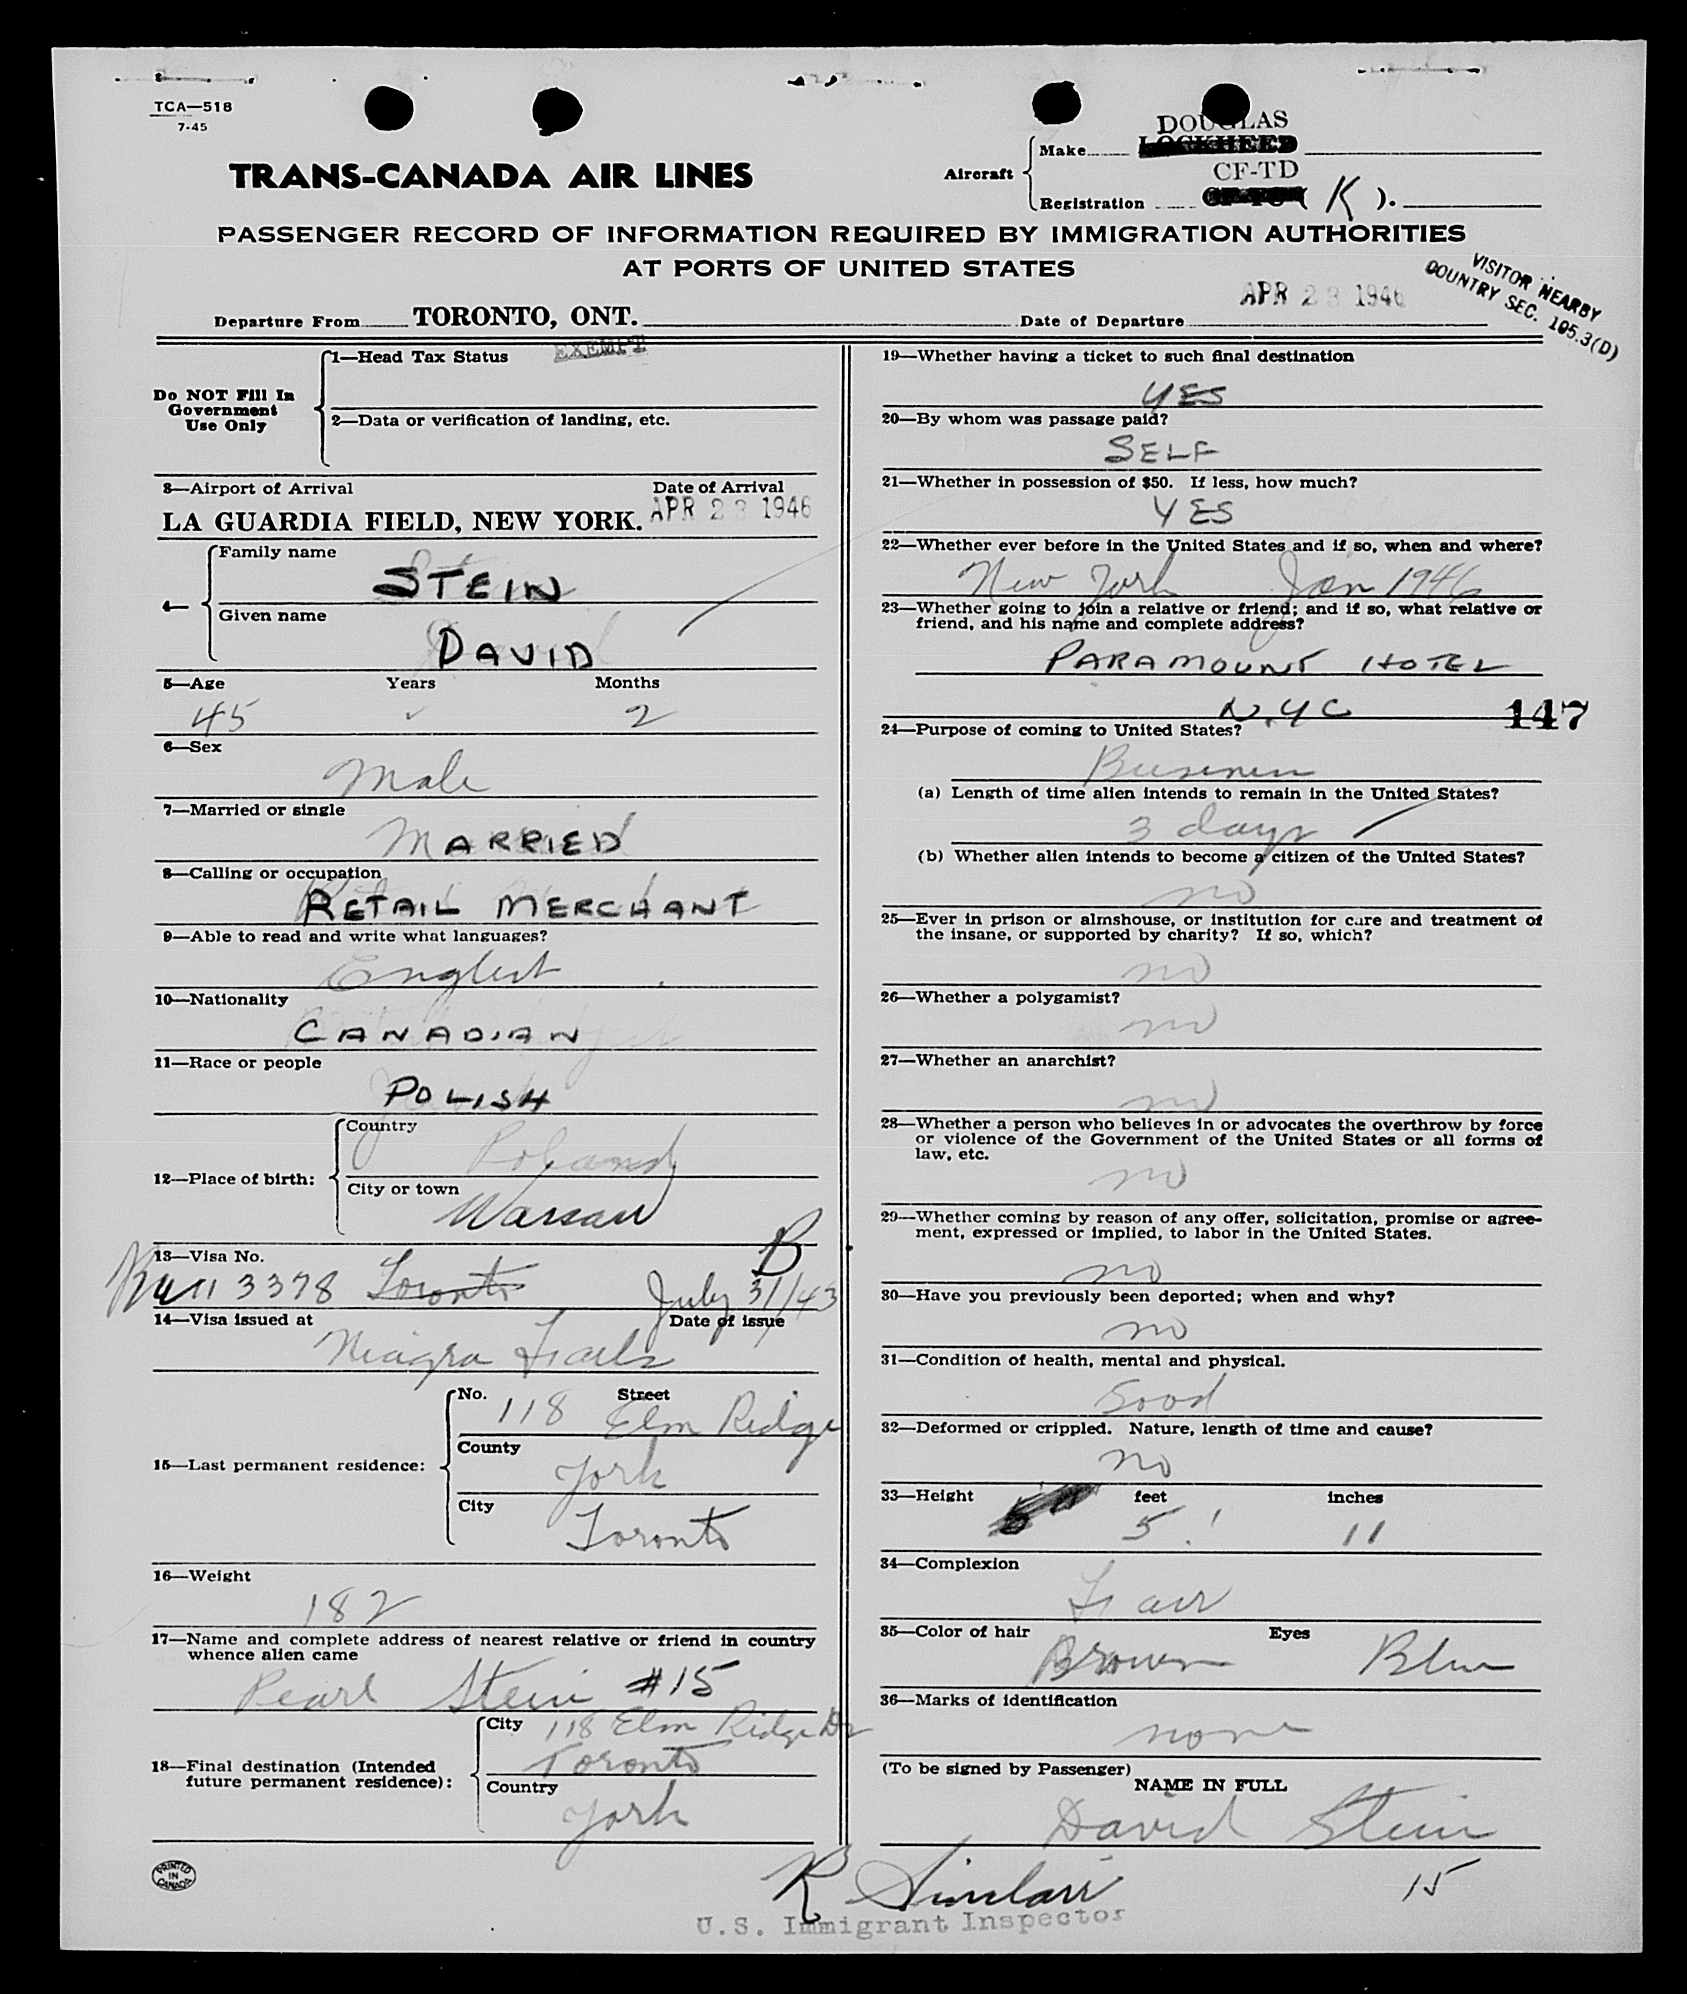 TCA—518
7-45
TRANS-CANADA AIR LINES
Aircraft
Make
DOUGLAS
LOCKHEED
CF-TD
Registration ( K ).
PASSENGER RECORD OF INFORMATION REQUIRED BY IMMIGRATION AUTHORITIES
AT PORTS OF UNITED STATES
VISITOR NEARBY
COUNTRY SEC. 105.3(D)
Departure From TORONTO, ONT. Date of Departure APR 23 1946
Do NOT Fill In
Government
Use Only
1—Head Tax Status EXEMPT
2—Data or verification of landing, etc.
3—Airport of Arrival Date of Arrival
LA GUARDIA FIELD, NEW YORK. APR 23 1946
4—
Family name
STEIN
Given name
DAVID
5—Age Years Months
45 2
6—Sex
Male
7—Married or single
MARRIED
8—Calling or occupation
RETAIL MERCHANT
9—Able to read and write what languages?
English
10—Nationality
CANADIAN
11—Race or people
POLISH
12—Place of birth:
Country
Poland
City or town
Warsaw
B
13—Visa No.
3378 Toronto July 31/43
14—Visa issued at Date of issue
Niagra Falls
15—Last permanent residence:
No. Street
118 Elm Ridge
County
York
City
Toronto
16—Weight
182
17—Name and complete address of nearest relative or friend in country
whence alien came
Pearl Stein #15
118 Elm Ridge Dr
18—Final destination (Intended
future permanent residence):
City
Toronto
Country
York
PRINTED
IN
CANADA
19—Whether having a ticket to such final destination
YES
20—By whom was passage paid?
SELF
21—Whether in possession of $50. If less, how much?
YES
22—Whether ever before in the United States and if so, when and where?
New York Jan 1946
23—Whether going to join a relative or friend; and if so, what relative or
friend, and his name and complete address?
PARAMOUNT HOTEL
N.Y C
147
24—Purpose of coming to United States?
Business
(a) Length of time alien intends to remain in the United States?
3 days
(b) Whether alien intends to become a citizen of the United States?
no
25—Ever in prison or almshouse, or institution for care and treatment of
the insane, or supported by charity? If so, which?
no
26—Whether a polygamist?
no
27—Whether an anarchist?
no
28—Whether a person who believes in or advocates the overthrow by force
or violence of the Government of the United States or all forms of
law, etc.
no
29—Whether coming by reason of any offer, solicitation, promise or agree-
ment, expressed or implied, to labor in the United States.
no
30—Have you previously been deported; when and why?
no
31—Condition of health, mental and physical.
Good
32—Deformed or crippled. Nature, length of time and cause?
no
33—Height feet inches
5' 11
34—Complexion
Fair
35—Color of hair Eyes
Brown Blue
36—Marks of identification
none
(To be signed by Passenger)
NAME IN FULL
David Stein
15
R Sinclair
U.S. Immigrant Inspector